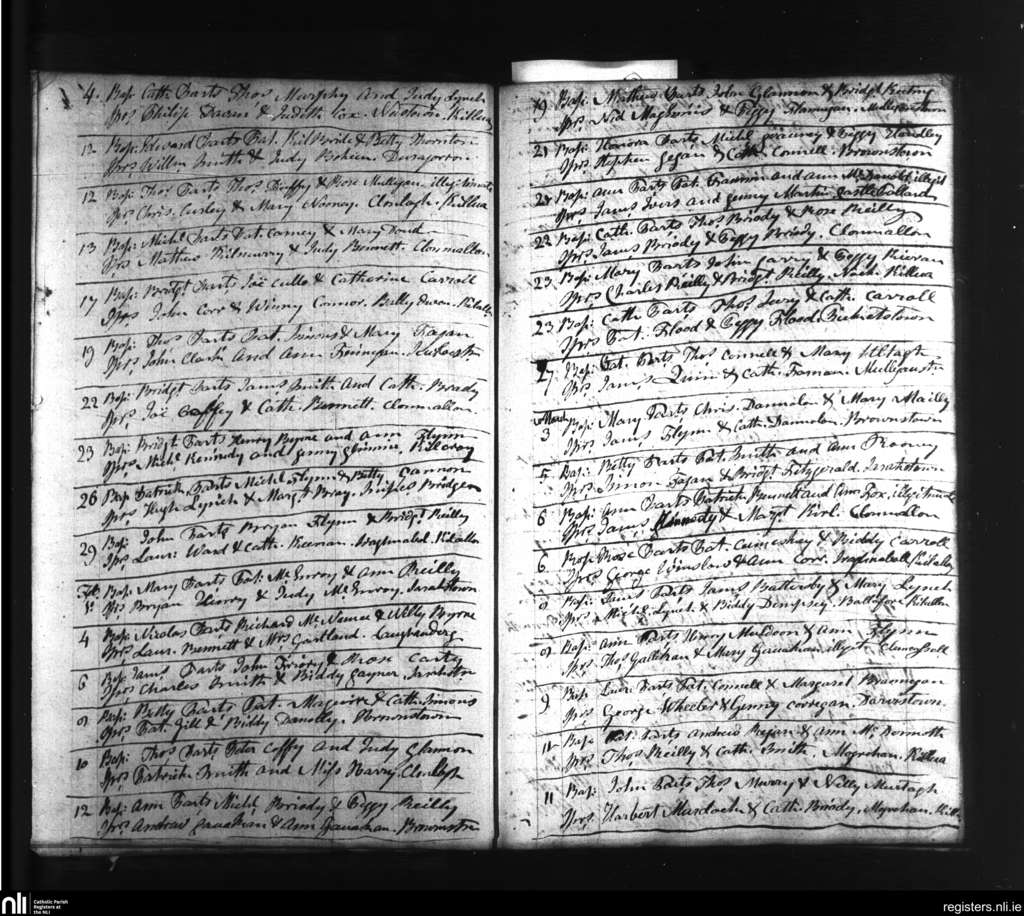 4. Bap: Cath: Parts Thos Murphy and Judy Lynch
Sprs Philip Daron & Judith Cox. Newtown. Killua
12 Bap: Edward Parts Pat. Kilbride & Betty Thornton
Sprs Willm Smith & Judy Bohein.
12 Bap: Thos Parts Thos Duffy & Rose Mulligan, illigitimate
Sprs Chris. Curley & Mary Nooney. Clonlagh. Killua
13 Bap: Michl Parts Pat. Carney & Mary Doud
Sprs Mathew Kilmurry & Judy Bennett. Clonmallon
17 Bap: Bridgt Parts Joe Cullo & Catherine Carroll
Sprs John Corr & Winny Connor. Killallon
19 Bap: Thos Parts Pat. Simons & Mary Fagan
Sprs John Clark and Ann Fennigan.
22 Bap: Bridgt Parts James Smith and Cath. Brady
Sprs Joe Coffey & Cath. Bennett. Clonmallon
23 Bap: Bridgt Parts Henry Byrne and Ann Flynn
Sprs Michl Kennedy and Jenny
26 Bap Patrick Parts Michl Flynn & Betty Cannon
Sprs Hugh Lynch & Margt Bray. Bridge
29 Bap: John Parts Bryan Flynn & Bridgt Reilly
Sprs Laur: Ward & Cath. Keenan. Killallon
Feb 1st Bap: Mary Parts Pat: McEnroy & Ann Reilly
Sprs Bryan & Judy McEnroy. Sarahstown
4 Bap: Nicolas Parts Richard McNamee & Nelly Byrne
Sprs Laur: Bennett & Mrs Gartland.
6 Bap: James Parts John & Rose Carty
Sprs Charles Smith & Biddy Gaynor. Sarahstn
9 Bap: Betty Parts Pat. Maguire & Cath. Simons
Sprs Pat. Gill & Biddy Danolly. Brownstown
10 Bap: Thos Parts Peter Coffy and Judy Glannon
Sprs Patrick Smith and Miss Barry. Clonlagh
12 Bap: Ann Parts Michl Briody & Peggy Reilly
Sprs Andrew Gauahan & Ann Gauahan. Brownstn
19 Bap: Mathew Parts John Glannon & Bridgt Keating
Sprs Ned & Peggy Flanagan. Mulliganstown
21 Bap: Honora Parts Michl & Peggy Handley
Sprs Stephen Fegan & Cath: Connell. Brownstown
22 Bap: Ann Parts Pat. Gannon and Ann McDanold, illigit
Sprs James Ivers and Jenny Martin Castle Pollard
22 Bap: Cath: Parts Thos Briody & Rose Reilly
Sprs James Briody & Peggy Briody. Clonmallon
23 Bap: Mary Parts John Garry & Peggy Kieran
Sprs Charles Reilly & Bridgt Reilly. Killua
23 Bap: Cath Parts Thos & Cath. Carroll
Sprs Pat. Flood & Peggy Flood.
27. Bap: Pat. Parts Thos Connell & Mary
Sprs James Quinn & Cath. Farnan. Mulliganstn
March
3 Bap: Mary Parts Chris. Dannolon & Mary Reilly
Sprs James Flynn & Cath: Dannolon. Brownstown
5 Bap: Betty Parts Pat. Smith and Ann Rooney
Sprs Simon Fagan & Bridgt Fitzgerald. Sarahstown
6 Bap: Ann Parts Patrick Bennett and Ann Fox, illigitimate
Sprs James Kennedy & Margt Birl. Clonmallon
6. Bap: Rose Parts Pat. Cumiskey & Biddy Carroll
Sprs George Winslow & Ann Corr. Killallon
9 Bap: Parts James Battersby & Mary Lynch
Sprs Michl Lynch & Biddy Dempsey. Killallon
9 Bap: Ann Parts Henry Muldoon & Ann Flynn
Sprs Thos Gallahan & Mary Gauahan, illigit.
9 Bap. Parts Pat. Connell & Margaret Brannigan
Sprs George Wheeler & Jenny Corrigan. Darvistown.
11 Bap Parts Andrew Regan & Ann McDormott
Sprs Thos Reilly & Cath. Smith. Moyrehan. Killua
11 Bap: John Parts Thos Murray & Nelly Murtagh
Sprs Harbert Murdock & Cath. Briody. Moyrehan.
nli
Catholic Parish
Registers at
the NLI
registers.nli.ie